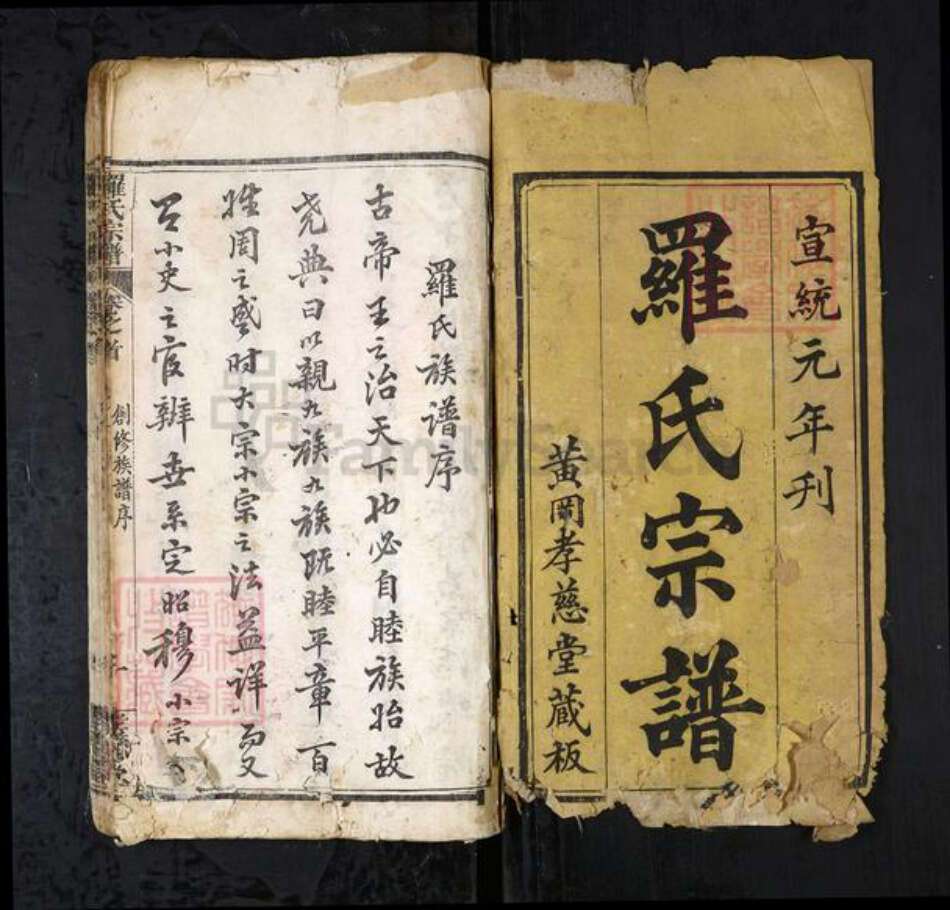 宣統元年刊
羅氏宗譜
黃岡孝慈堂藏板
羅氏族譜序
古帝王之治天下也必自睦族始故
堯典曰以親九族九族既睦平章百
姓周之盛時大宗小宗之法益詳而又
小史之官辨世系定昭穆小宗
羅氏宗譜
卷之首
創修族譜序